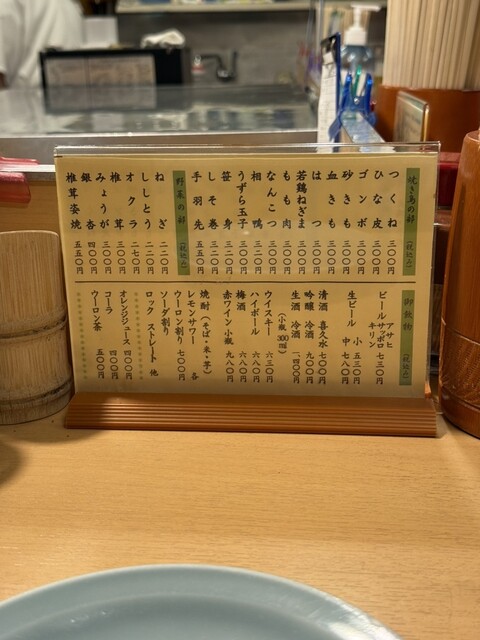 焼き鳥の部 (税込み)
つくね 三〇〇円
ひな皮 三〇〇円
ゴンボ 三〇〇円
砂きも 三〇〇円
血きも 三〇〇円
はつ 三〇〇円
若鶏ねぎま 三〇〇円
もも肉 三〇〇円
なんこつ 三〇〇円
相鴨 三二〇円
うずら玉子 三〇〇円
笹身 三二〇円
しそ巻 三〇〇円
手羽先 五五〇円
野菜の部 (税込み)
ねぎ 二二〇円
ししとう 二二〇円
オクラ 二七〇円
椎茸 三〇〇円
みょうが 三〇〇円
銀杏 四〇〇円
椎茸姿焼 五五〇円
御飲物 (税込み)
アサヒ
ビールサッポロ 七三〇円
キリン
生ビール 小 五三〇円
中 七八〇円
清酒 喜久水 七〇〇円
吟醸 冷酒 九〇〇円
生酒 冷酒 一四〇〇円
(小瓶 300ml)
ウイスキー 六三〇円
ハイボール 六八〇円
梅酒 六八〇円
赤ワイン小瓶 九八〇円
焼酎(そば・米・芋)
レモンサワー 各
ウーロン割り 七〇〇円
ソーダ割り
ロック ストレート 他
オレンジジュース 四〇〇円
コーラ 四〇〇円
ウーロン茶 五〇〇円